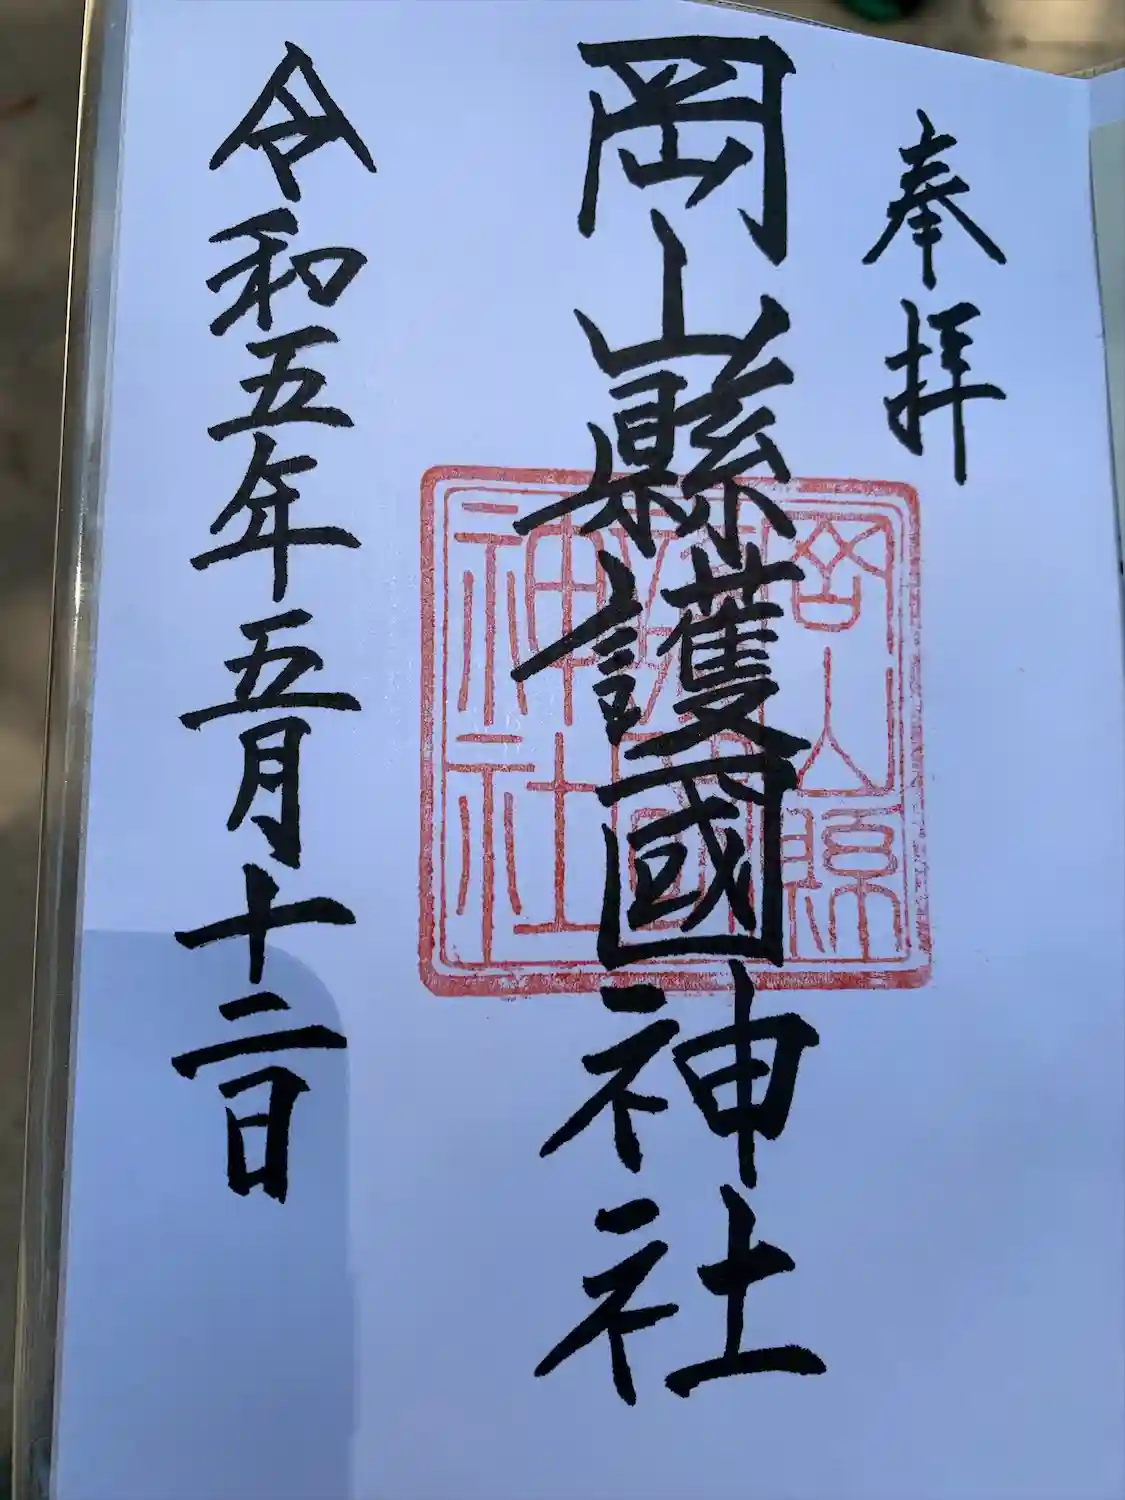 奉拝
岡山縣護國神社
岡山縣護國神社
令和五年五月十二日